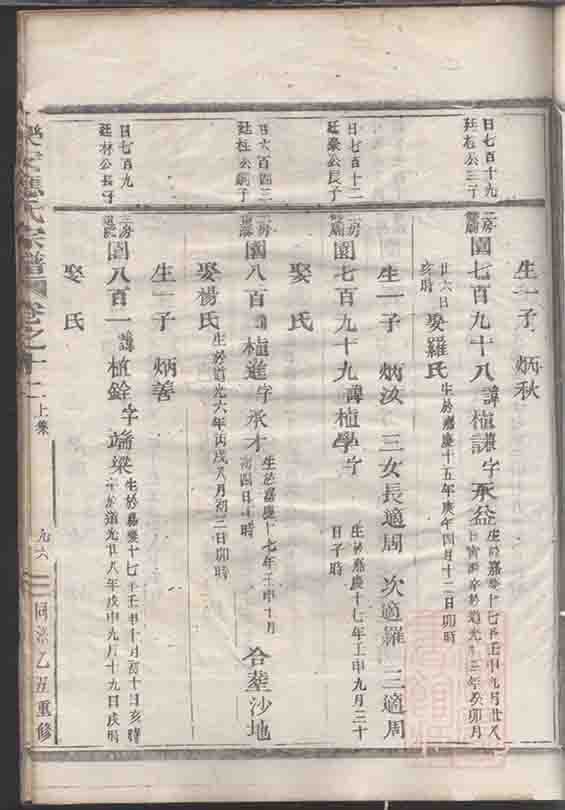 生一子 炳秋
日七百十九
廷柱公三子
二房
園七百九十八 諱植 字承益 生於嘉慶十七年壬申九月廿八
日寅時卒於道光廿三年癸卯月
廿六日
亥時
娶羅氏 生於嘉慶十五年庚午四月十二日卯時
生一子 炳汝 三女長適周 次適羅 三適周
日七百十二
廷 公長子
二房
園七百九十九 諱植學字 生於嘉慶十七年壬申九月三十
日子時
娶 氏
日六百四三
廷柱公嗣子
二房
園八百 諱植進字承才 生於嘉慶十七年壬申十月
初四日 時
娶楊氏 生於道光六年丙戌八月初二日卯時
合葬沙地
生一子 炳善
日七百九
廷林公長子
三房
園八百一 諱植銓字瑞梁 生於嘉慶十七年壬申十月初十日亥時
卒於道光廿八年戊申九月十九日戌時
娶 氏
氏宗譜 卷之十二 上集 九六 同治乙丑重修